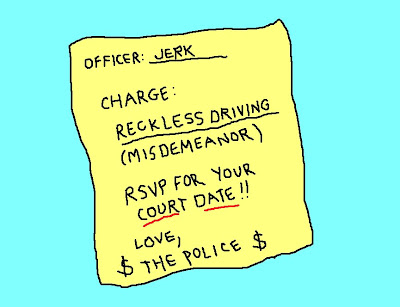 OFFICER: JERK
CHARGE:
RECKLESS DRIVING
(MISDEMEANOR)
RSVP FOR YOUR
COURT DATE!!
LOVE,
$ THE POLICE $